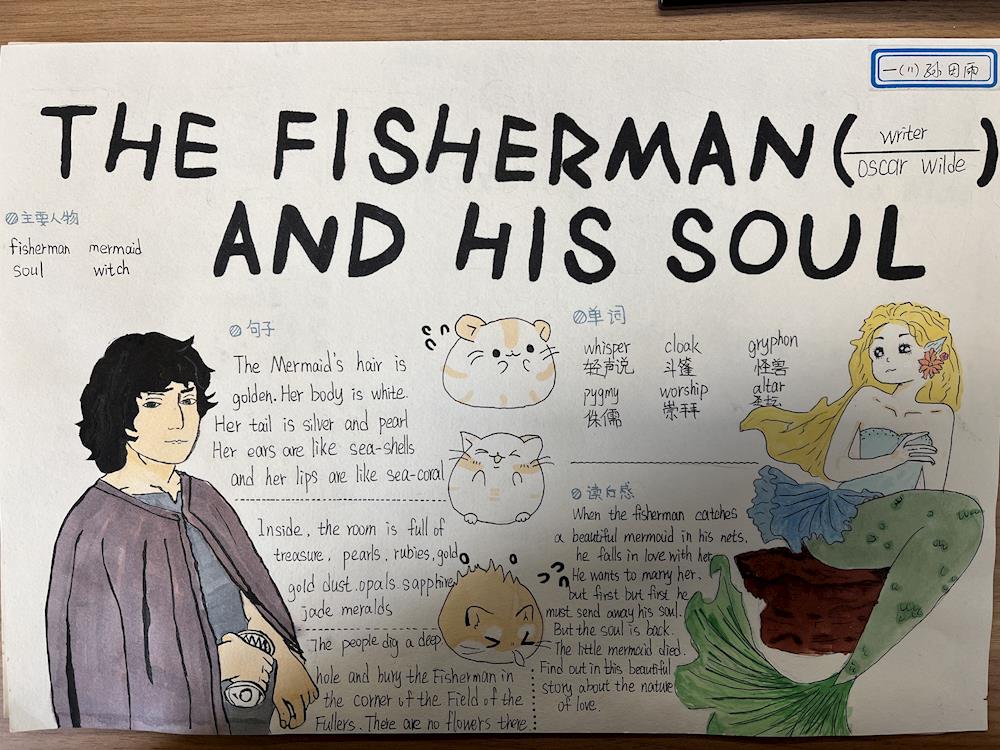 一(11) 孙田雨
THE FISHERMAN (writer
oscar wilde)
AND HIS SOUL
主要人物
fisherman mermaid
soul witch
句子
The Mermaid's hair is
golden. Her body is white.
Her tail is silver and pearl
Her ears are like sea-shells
and her lips are like sea-coral
Inside, the room is full of
treasure. pearls, rubies, gold
gold dust. opals. sapphire
jade meralds
The people dig a deep
hole and bury the Fisherman in
the corner of the Field of the
Fullers. There are no flowers there
单词
whisper cloak gryphon
轻声说 斗篷 怪兽
pygmy worship altar
侏儒 崇拜 圣坛
读后感
When the fisherman catches
a beautiful mermaid in his nets,
he falls in love with her.
He wants to marry her,
but first but first he
must send away his soul.
But the soul is back.
The little mermaid died.
Find out in this beautiful
story about the nature
of love.